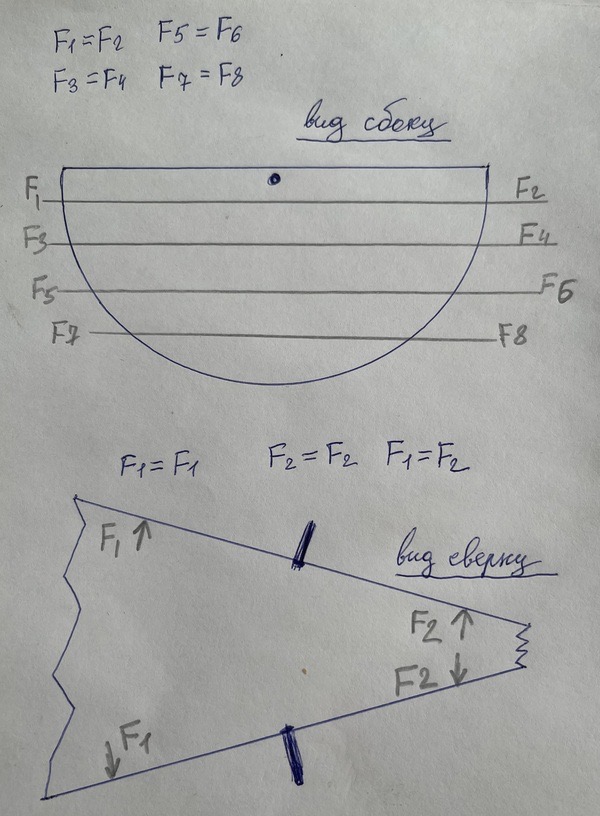 F1=F2 F5=F6
F3=F4 F7=F8
вид сбоку
F1 F2
F3 F4
F5 F6
F7 F8
F1=F1 F2=F2 F1=F2
F1
вид сверху
F2
F2
F1